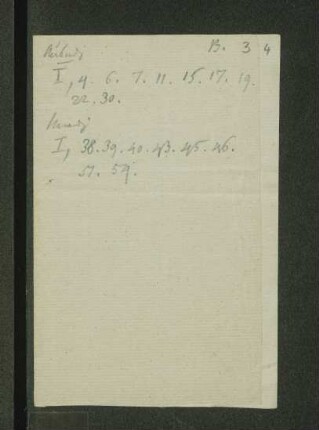 B. 3 4
I, 4. 6. 7. 11. 15. 17. 19.
22. 30.
I, 38. 39. 40. 43. 45. 46.
51. 59.